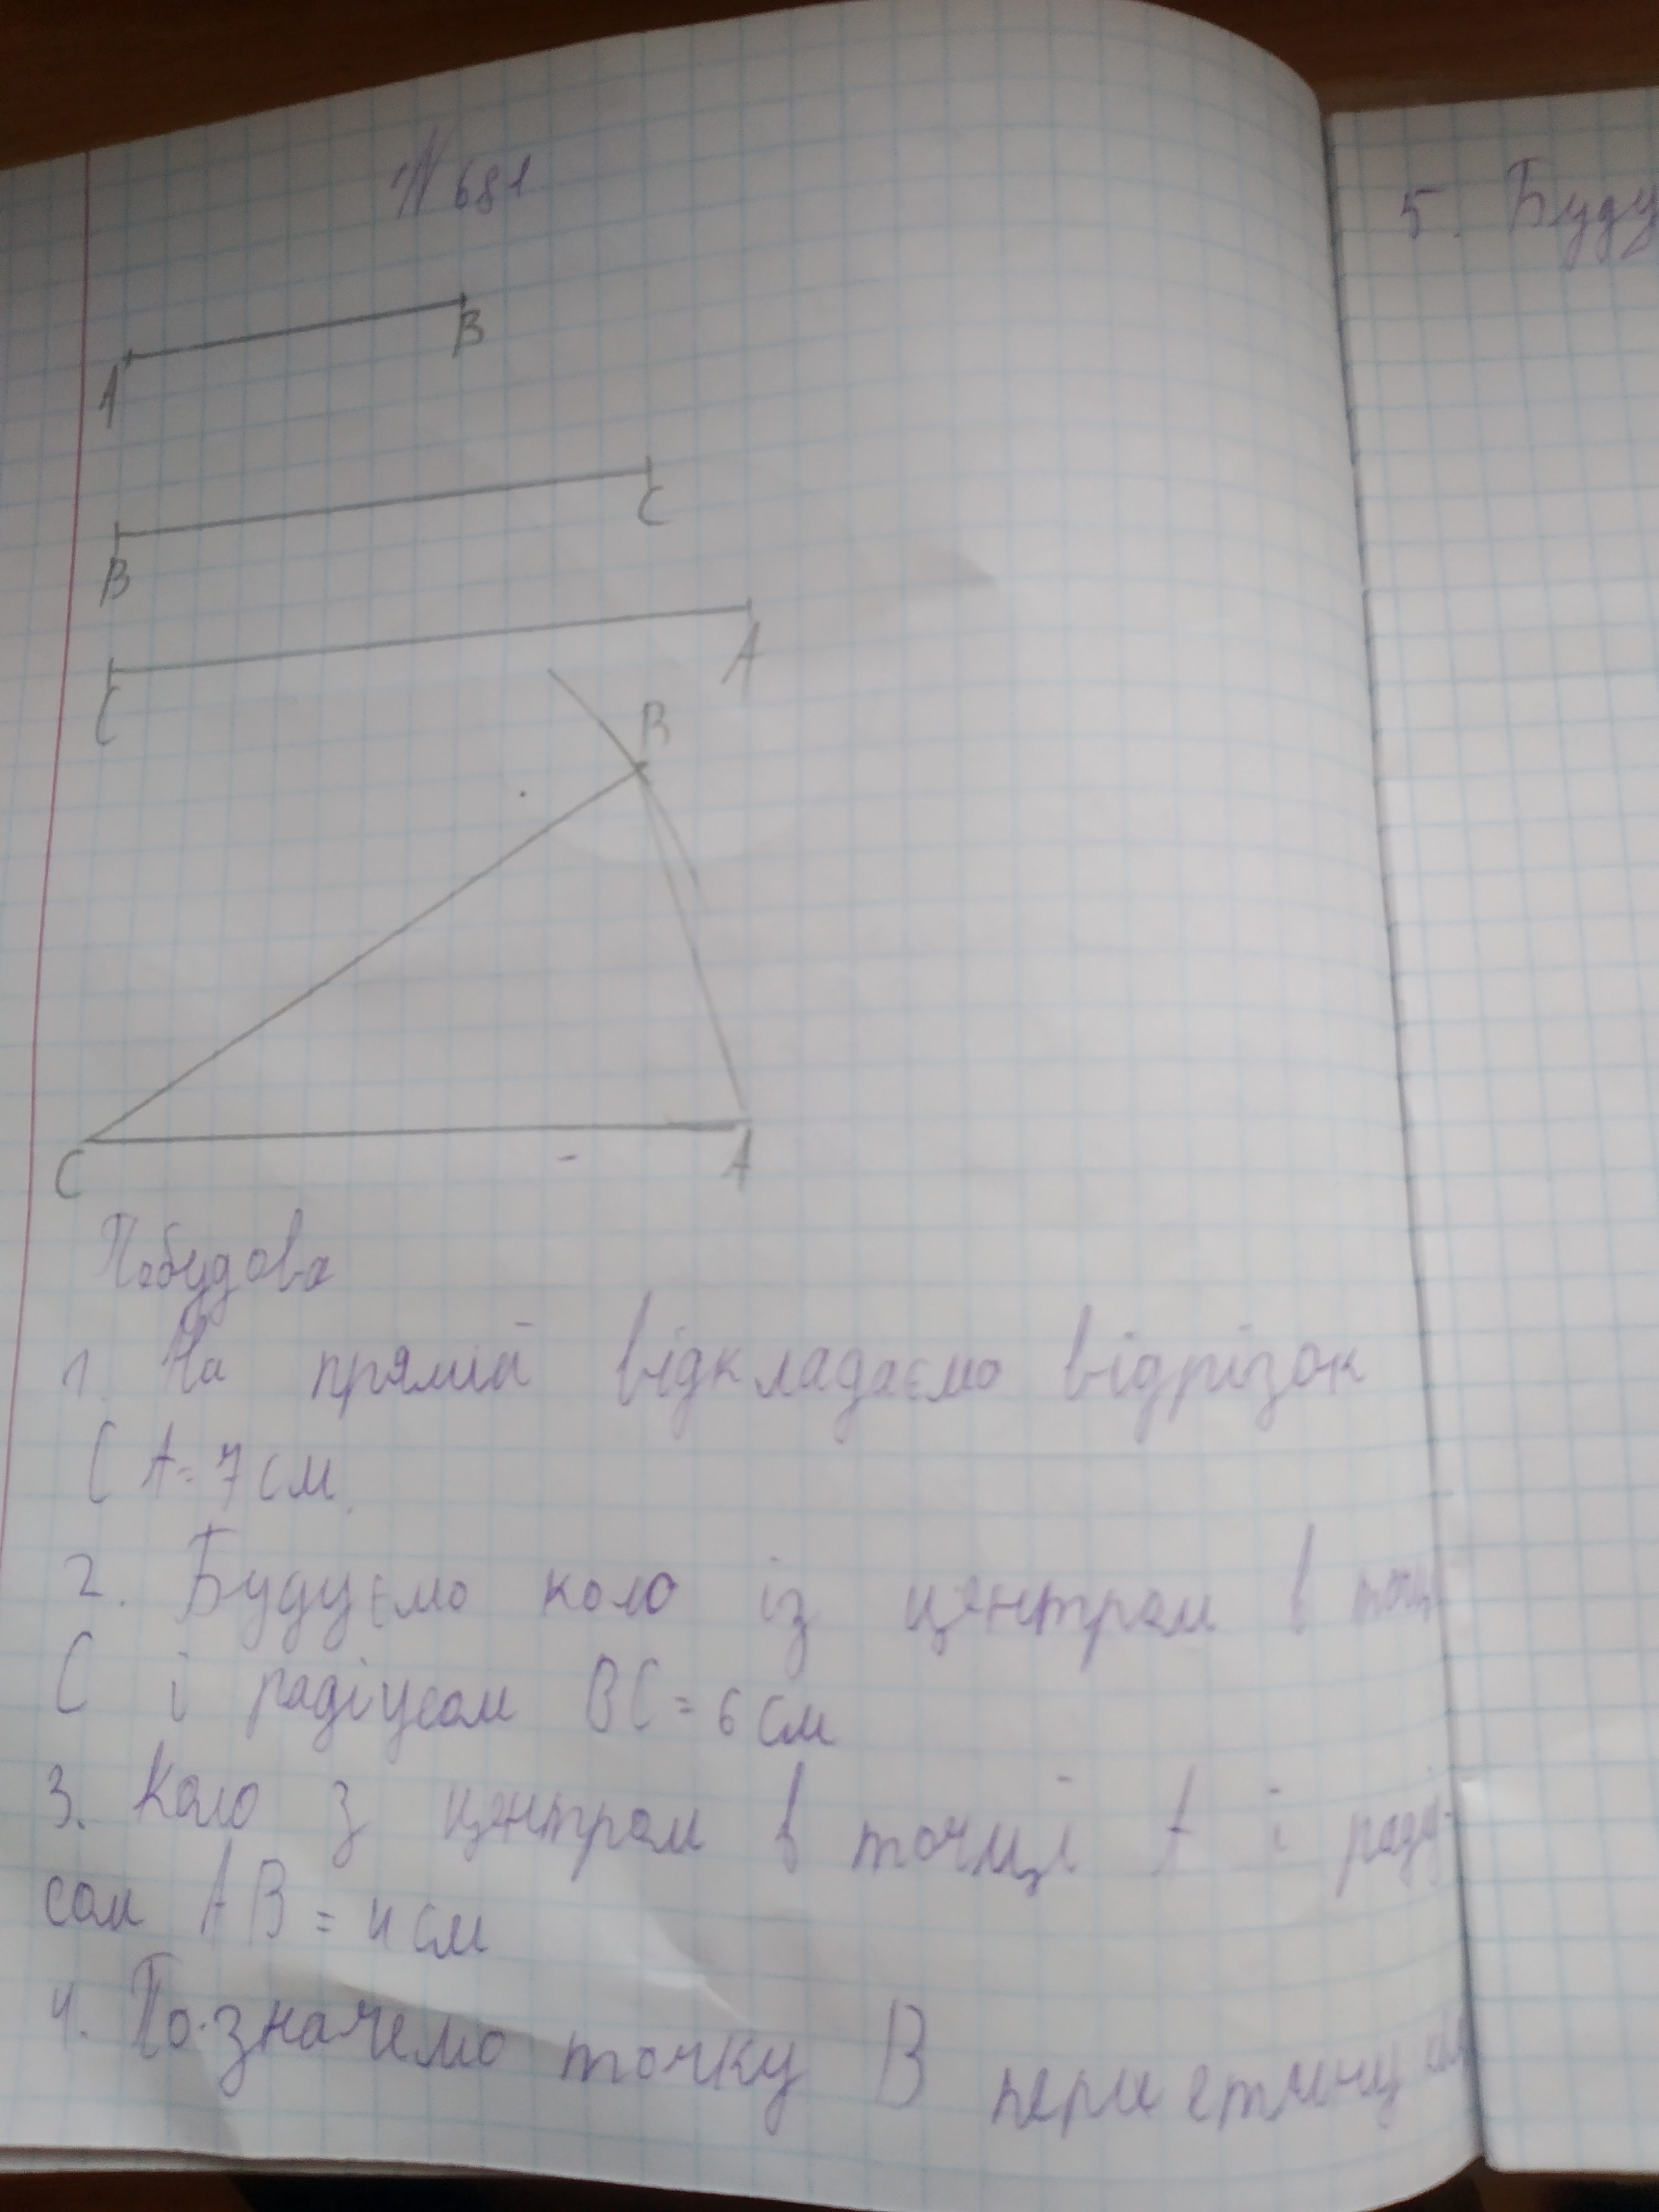 № 681
A B
B C
C A
B
C A
Побудова
1. На прямій відкладаємо відрізок
CA = 7 см.
2. Будуємо коло із центром в точці
C і радіусом BC = 6 см
3. Коло з центром в точці A і радіу-
сом AB = 4 см
4. Позначемо точку B перетину
5. Буду